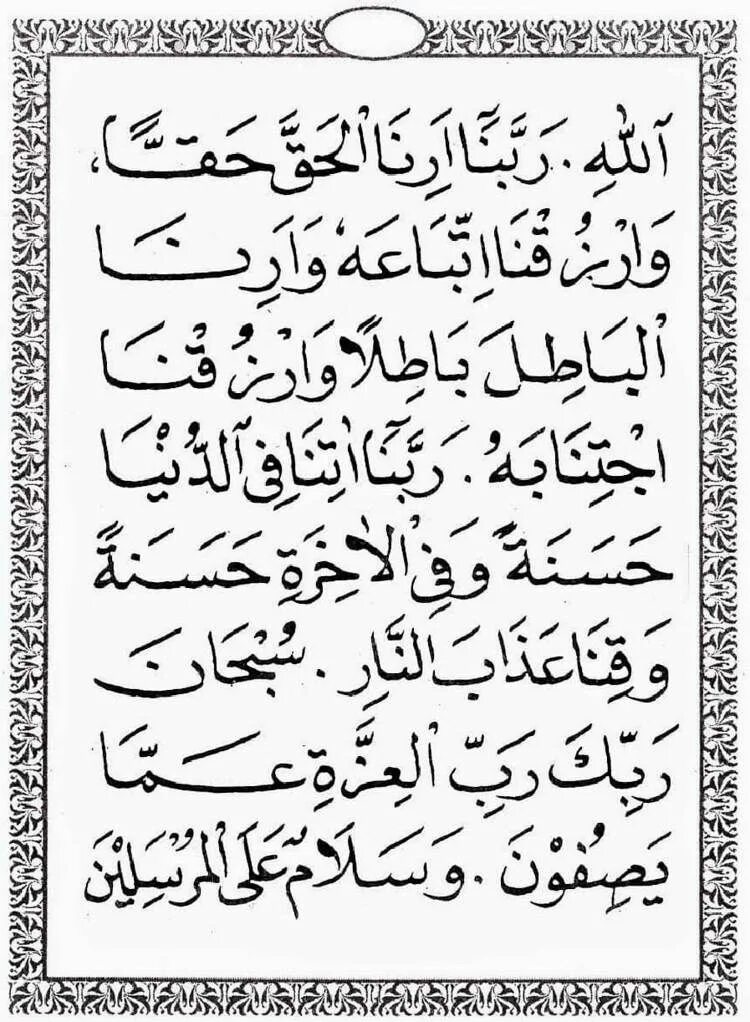 اَللّٰهِ . رَبَّنَآ اَرِنَا الْحَقَّ حَقًّا،
وَارْزُقْنَا اتِّبَاعَهٗ وَاَرِنَا
الْبَاطِلَ بَاطِلًا وَارْزُقْنَا
اجْتِنَابَهُ . رَبَّنَآ اٰتِنَا فِى الدُّنْيَا
حَسَنَةً وَفِى الْاٰخِرَةِ حَسَنَةً
وَقِنَا عَذَابَ النَّارِ . سُبْحَانَ
رَبِّكَ رَبِّ الْعِزَّةِ عَمَّا
يَصِفُوْنَ . وَسَلَامٌ عَلَى الْمُرْسَلِيْنَ